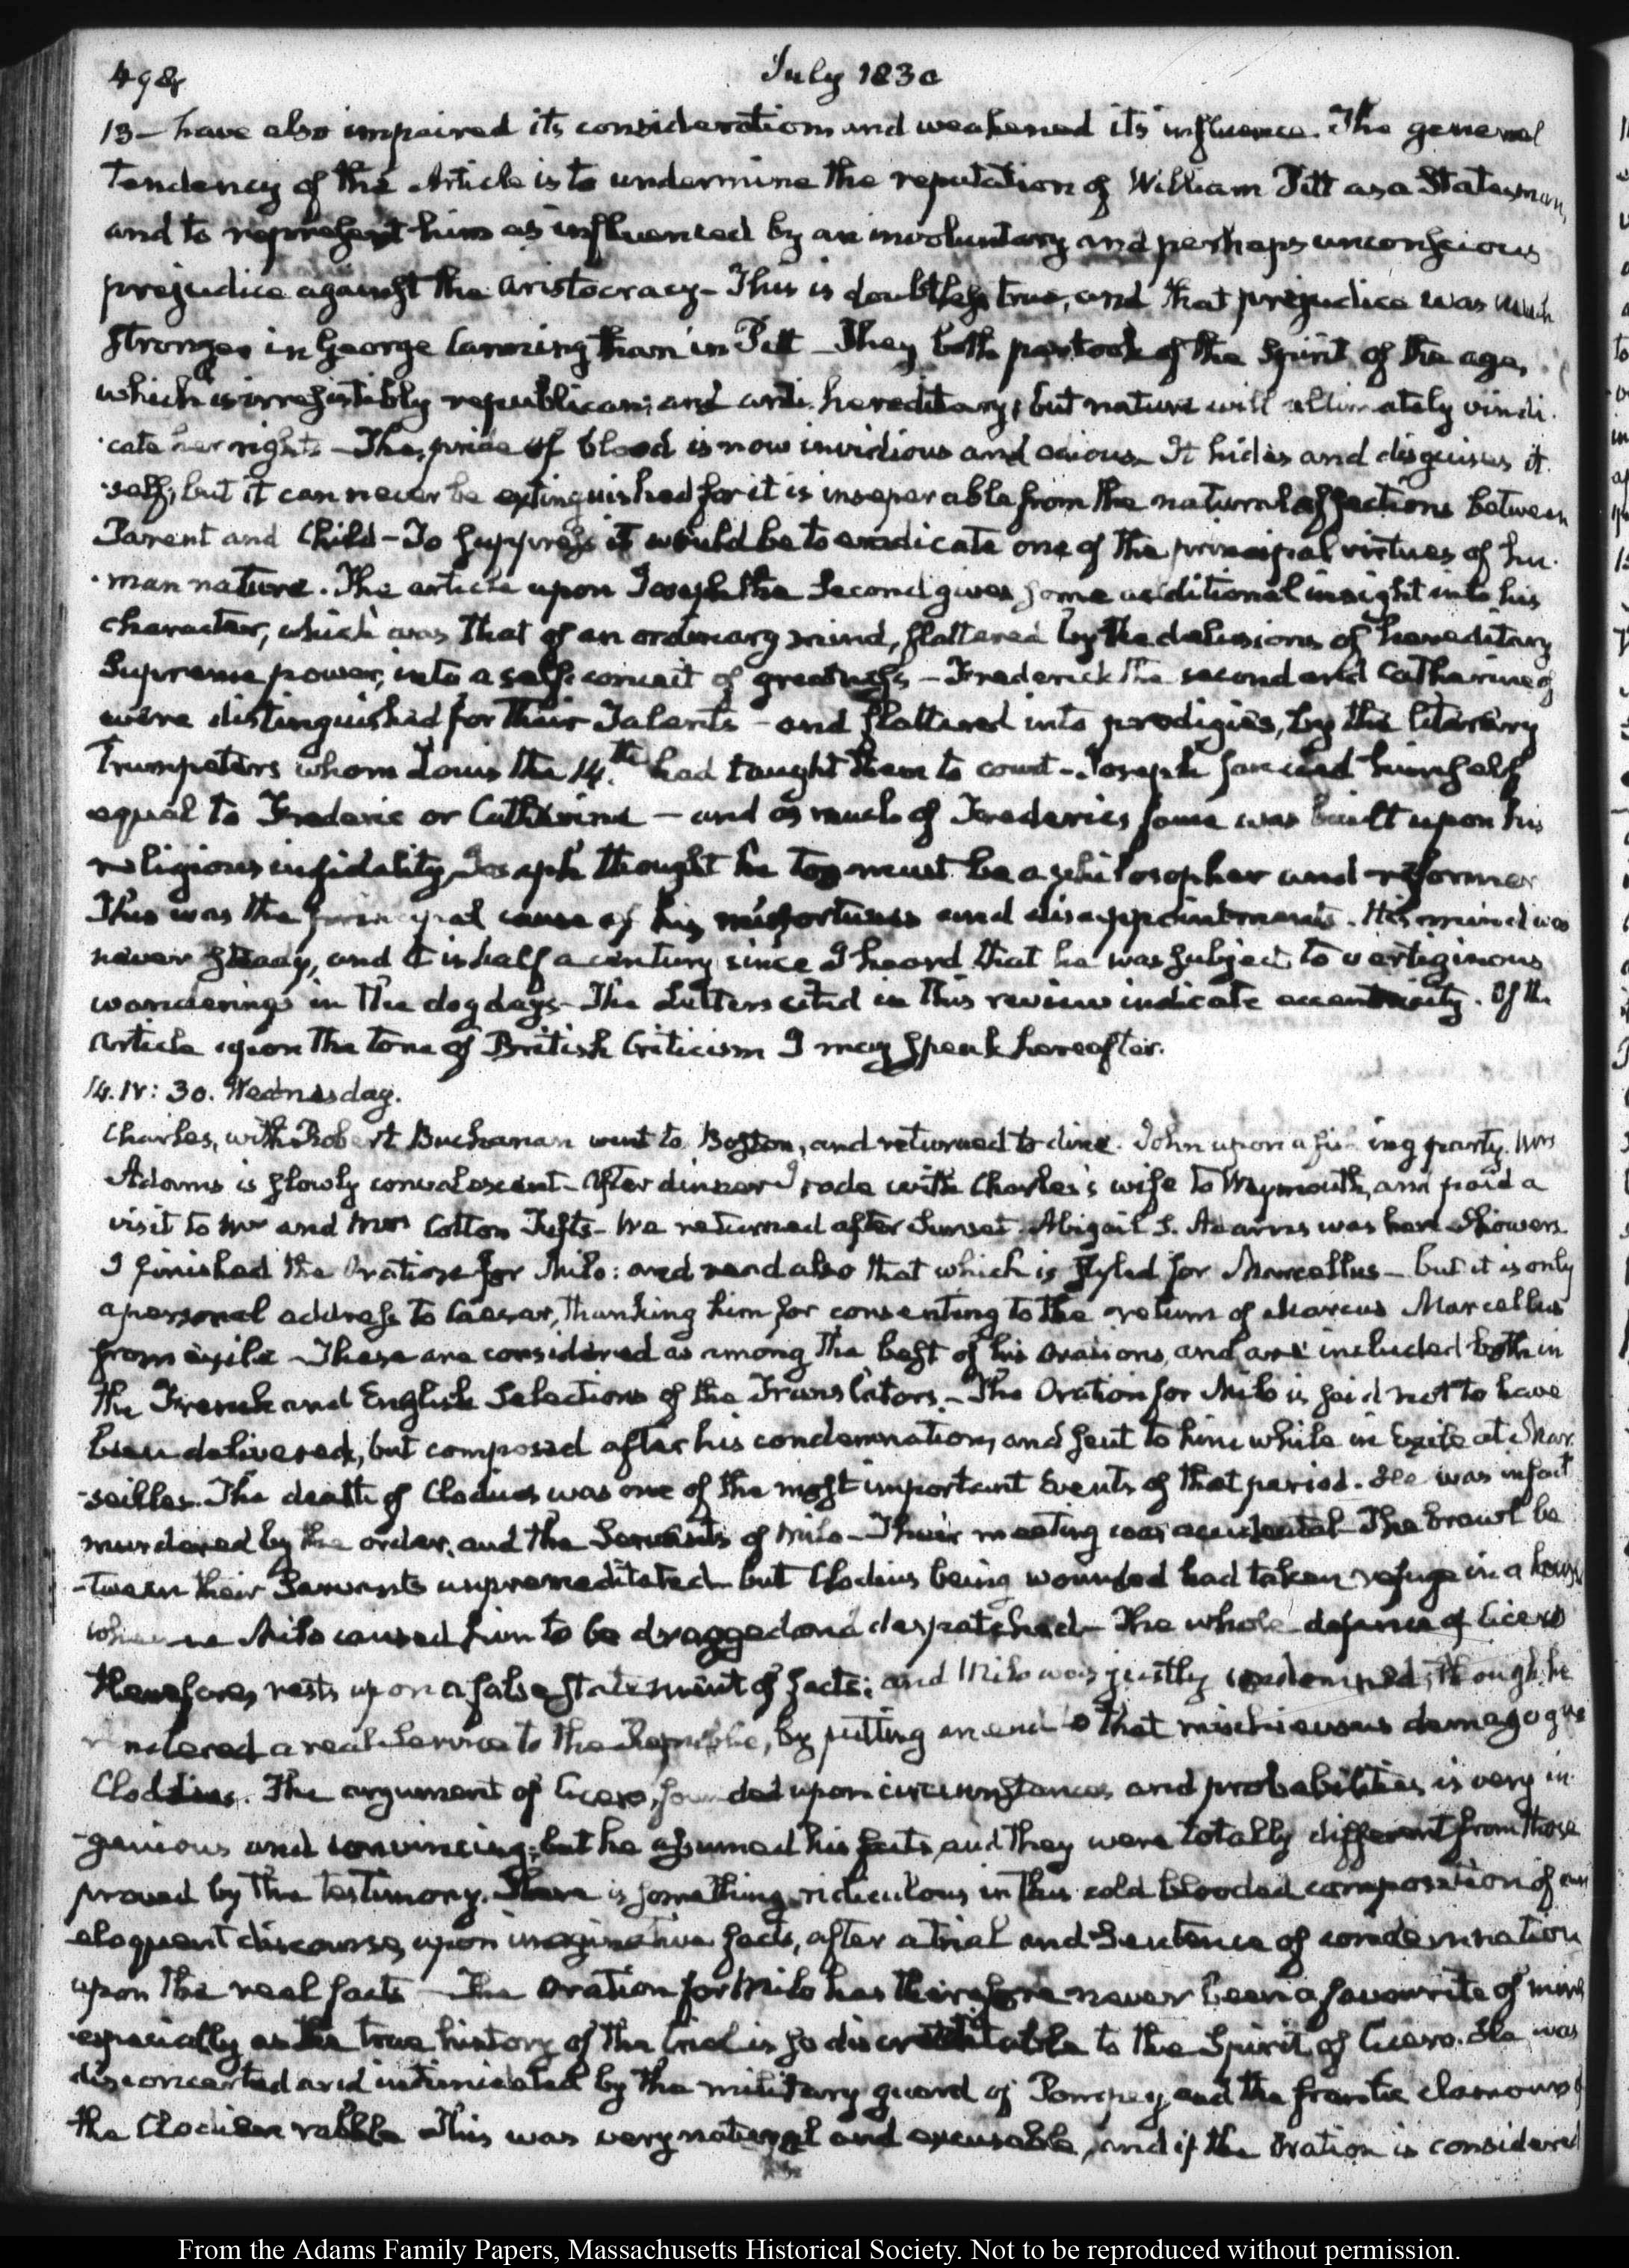 498
July 1830
13 – have also impaired its consideration and weakened its influence. The general
tendency of the Article is to undermine the reputation of William Pitt as a Statesman,
and to represent him as influenced by an involuntary and perhaps unconscious
prejudice against the aristocracy – This is doubtless true, and that prejudice was much
stronger in George Canning than in Pitt – They both partook of the Spirit of the age,
which is irresistibly republican; and anti-hereditary; but nature will ultimately vindi-
-cate her rights – The pride of blood is now invidious and odious – It hides and disguises it-
-self; but it can never be extinguished for it is inseparable from the natural affections between
Parent and Child – To suppress it would be to eradicate one of the principal virtues of hu-
-man nature. The article upon Joseph the Second gives some additional insight into his
character, which was that of an ordinary mind, flattered by the delusions of hereditary
Supreme power, into a self-conceit of greatness – Frederick the second and Catharine
were distinguished for their Talents – and flattered into prodigies, by the literary
Trumpeters whom Louis the 14.th had taught them to court – Joseph fancied himself
equal to Frederic or Catharine – and as much of Frederics fame was built upon his
religious infidelity, Joseph thought he too must be a philosopher and reformer
This was the principal cause of his misfortunes and disappointments. His mind was
never steady, and it is half a century since I heard that he was subject to vertiginous
wanderings in the dog days – The Letters cited in this review indicate eccentricity. Of the
Article upon the tone of British Criticism I may speak hereafter.
14. IV: 30. Wednesday.
Charles, with Robert Buchanan went to Boston, and returned to dine. John upon a fishing party. Mrs
Adams is slowly convalescent – After dinner I rode with Charles's wife to Weymouth, and paid a
visit to Mr and Mrs Cotton Tufts – We returned after Sunset. Abigail S. Adams was here – Showers.
I finished the Oration for Milo: and read also that which is styled for Marcellus – but it is only
a personal address to Caesar, thanking him for consenting to the return of Marcus Marcellus
from exile – These are considered as among the best of his orations, and are included both in
the French and English Selections of the Translators. – The Oration for Milo is said not to have
been delivered, but composed after his condemnation, and sent to him while in Exile at Mar-
-seilles. The death of Clodius was one of the most important Events of that period. He was in fact
murdered by the order, and the Servants of Milo – Their meeting was accidental – The brawl be-
-tween their Servants unpremeditated – but Clodius being wounded had taken refuge in a house
whence Milo caused him to be dragged and despatched – The whole defence of Cicero
therefore, rests upon a false statement of facts; and Milo was justly condemned, though he
rendered a real Service to the Republic, by putting an end to that mischievous demagogue
Clodius. The argument of Cicero, founded upon circumstances and probabilities is very in-
-genious and convincing; but he assumed his facts, and they were totally different from those
proved by the testimony. There is something ridiculous in this cold blooded composition of an
eloquent discourse, upon imaginative facts, after a trial and Sentence of condemnation
upon the real facts – The Oration for Milo has therefore never been a favourite of mine
especially as the true history of the trial is so discreditable to the Spirit of Cicero. He was
disconcerted and intimidated by the military guard of Pompey, and the frantic clamours of
the Clodian rabble – This was very natural and excusable, and if the Oration is considered
From the Adams Family Papers, Massachusetts Historical Society. Not to be reproduced without permission.